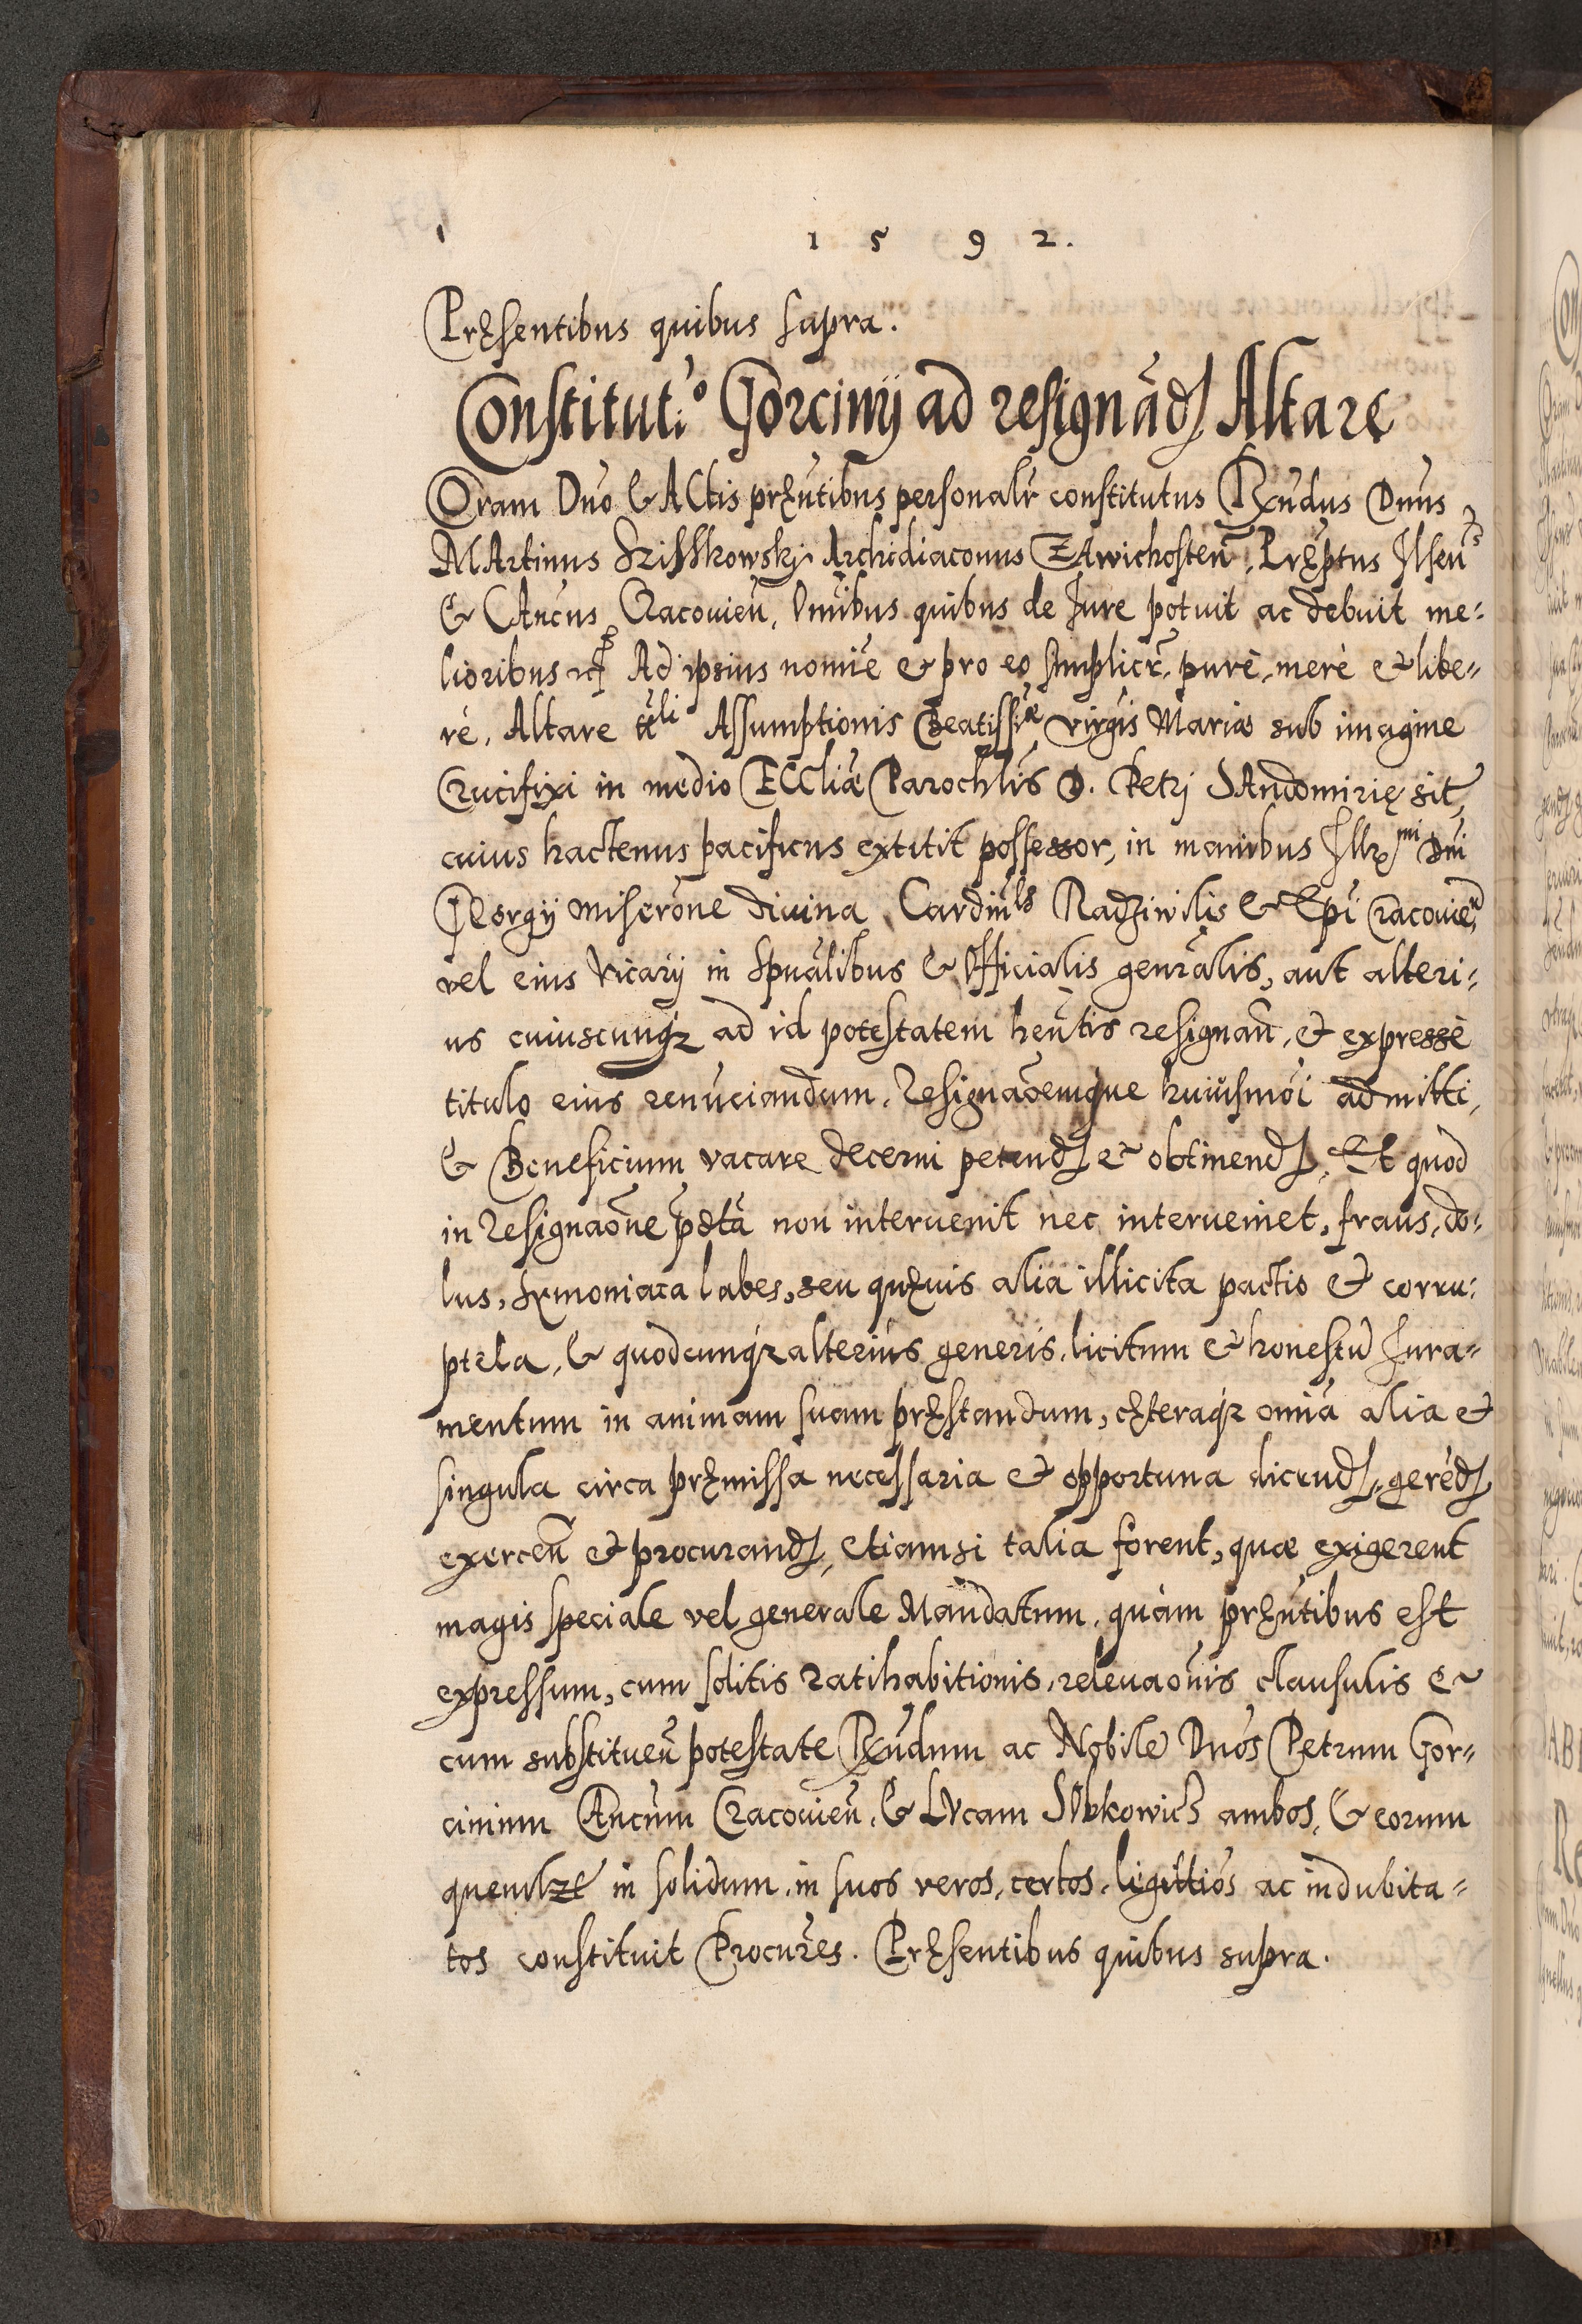 1592.
Pręsentibus quibus supra.
Constitut.o Gorcinij ad resignãd Altare
Coram Dño & Actis pręñtibus personalr̃ constitutus Rx̃ndus Dñus
Martinus Szisskowskj Archidiaconus Zawichosteñ, Pręp̃tus Ilseñ
& Can̄cus Cracovieñ, Omĩbus quibus de Jure potuit ac debuit me-
lioribus Ad ipsius nomĩe & pro eo simplicr̃, purè, merè et libe-
rè, Altare tt̃li Assumptionis Beatissiæ virgĩs Mariæ sub imagine
Crucifixi in medio Eccliæ Parochl̃is D. Petrj Sandomirię sit,
cuius hactenus pacificus extitit possessor, in manibus Illr̃mi Dñi
Georgij miserõne divina, Cardinl̃ls Radziwilis & Epĩ Cracovieñ,
vel eius Vicarij in Spuãlibus & Officialis genrãlis, aut alteri-
us cuiuscunqȝ ad id potestatem heñtis resignañ, et expressè
titulo eius renunciandum, Resignaõemque huiusmõi admitti,
& Beneficium vacare decerni petend & obtinend, Et quod
in Resignaõne pdtã non intervenit nec interveniet, fraus, do-
lus, Symoniaca labes, seu quęvis alia illicita pactio et corru-
ptela, & quodcunqȝ alterius generis, licitum & honestũ Jura-
mentum in animam suam pręstandum, cęteraqȝ omĩa alia et
singula circa pręmissa necessaria et opportuna dicend, gerẽd
exerceñ et procurand, etiamsi talia forent, quæ exigerent
magis speciale vel generale Mandatum, quàm pręñtibus est
expressum, cum solitis ratihabitionis, relevaõnis clausulis &
cum substitueñ potestate Rx̃ndum ac Nobilẽ Dños Petrum Gor-
cinium Can̄cum Cracovieñ, & Lucam Subkowicz ambos, & eorum
quemlȝt in solidum, in suos veros, certos, legittĩos ac indubita-
tos constituit Procur̃es. Pręsentibus quibus supra.